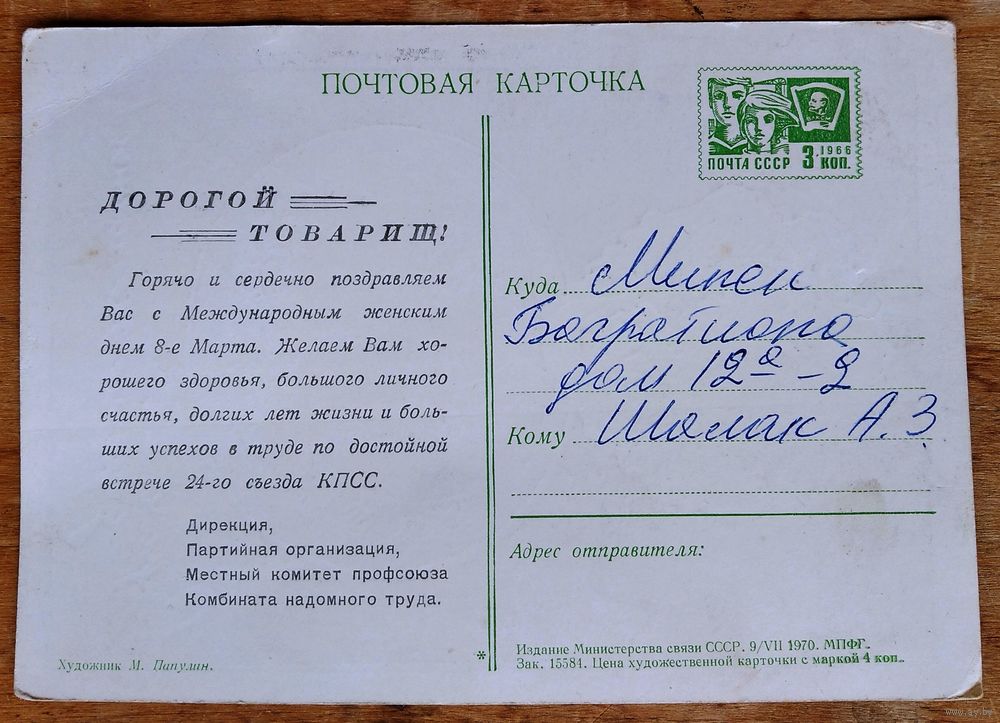 ПОЧТОВАЯ КАРТОЧКА
ПОЧТА СССР 3 КОП.
1966
ВЛКСМ
ДОРОГОЙ
ТОВАРИЩ!
Горячо и сердечно поздравляем
Вас с Международным женским
днем 8-е Марта. Желаем Вам хо-
рошего здоровья, большого личного
счастья, долгих лет жизни и боль-
ших успехов в труде по достойной
встрече 24-го съезда КПСС.
Дирекция,
Партийная организация,
Местный комитет профсоюза
Комбината надомного труда.
Художник М. Папулин.
Куда Минск
Багратиона
дом 12а - 2
Кому Шолак А. З
Адрес отправителя:
*
Издание Министерства связи СССР. 9/VII 1970. МПФГ.
Зак. 15584. Цена художественной карточки с маркой 4 коп.
www.ay.by